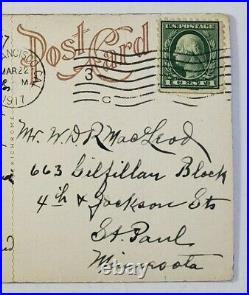 Post Card
NCISCO
MAR 22
M
1917
3
C
U.S. POSTAGE
1 CENT 1
Mr. W. D. R. MacLeod
663 Gilfillan Block
4th & Jackson Sts
St. Paul
Minnesota